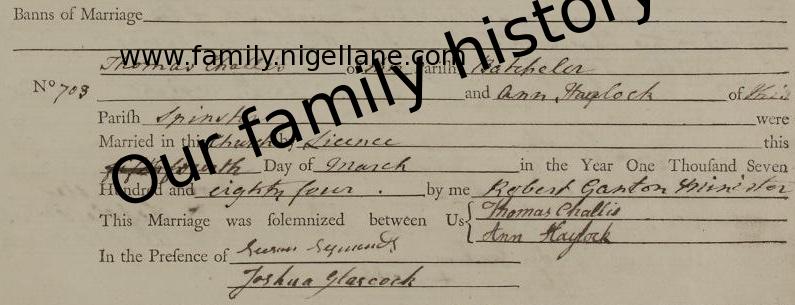 Banns of Marriage
Our family history
www.family.nigellane.com
Thomas Challis of this Pariſh Batcheler
Nº 703 and Ann Haylock of this
Pariſh Spinster were
Married in this Church by Licence this
Day of March in the Year One Thouſand Seven
Hundred and eighty four . by me Robert Ganton Minister
This Marriage was ſolemnized between Us Thomas Challis
Ann Haylock
In the Preſence of Susan Symonds
Joshua Glascock